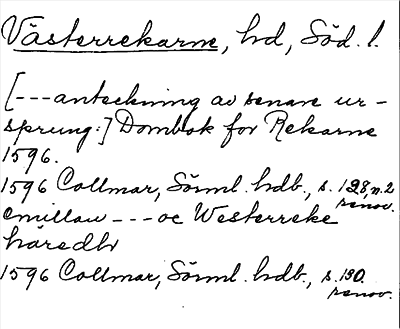 Västerrekarne, hd, Söd. l.
[---anteckning av senare ur-
sprung:] Dombok for Rekarne
1596.
1596 Collmar, Sörml. hdb., s. 128 n. 2
renov.
emillan --- oc Westerreke
häredh
1596 Collmar, Sörml. hdb., s. 130.
renov.